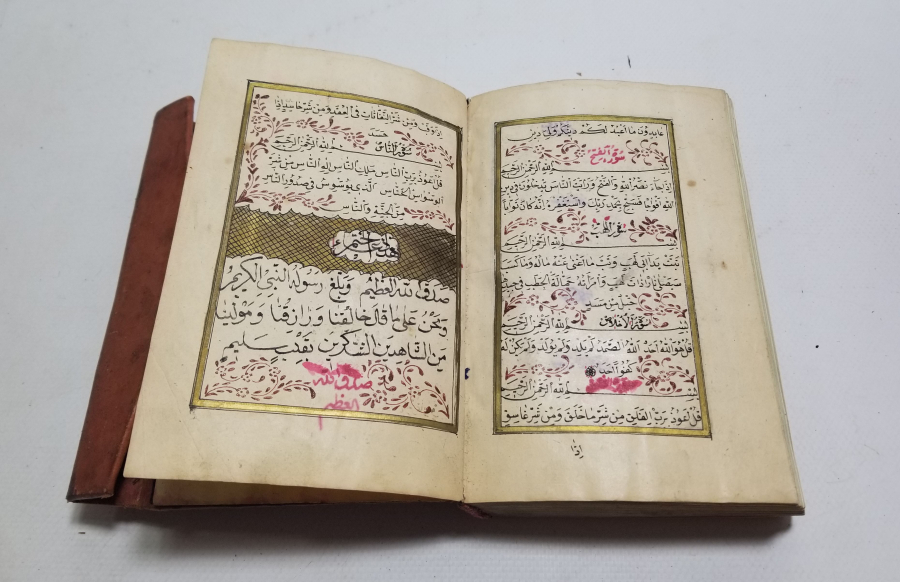 عابدون ما اعبد لكم دينكم ولي دين
سورة الفتح
بسم الله الرحمن الرحيم
اذا جاء نصر الله والفتح ورايت الناس يدخلون في دين
الله افواجا فسبح بحمد ربك واستغفره انه كان توابا
سورة اللهب
بسم الله الرحمن الرحيم
تبت يدا ابي لهب وتب ما اغنى عنه ماله وما كسب
سيصلى نارا ذات لهب وامراته حمالة الحطب في جيدها
حبل من مسد
سورة الاخلاص
بسم الله الرحمن الرحيم
قل هو الله احد الله الصمد لم يلد ولم يولد ولم يكن له
كفوا احد
سورة الفلق
بسم الله الرحمن الرحيم
قل اعوذ برب الفلق من شر ما خلق ومن شر غاسق
اذا
اذا وقب ومن شر النفاثات في العقد ومن شر حاسد اذا
حسد
سورة الناس
بسم الله الرحمن الرحيم
قل اعوذ برب الناس ملك الناس اله الناس من شر
الوسواس الخناس الذي يوسوس في صدور الناس
من الجنة والناس
هذا دعاء ختم
صدق الله العظيم وبلغ رسوله النبي الكريم
ونحن على ما قال خالقنا ورازقنا ومولينا
من الشاهدين الشاكرين بقلب سليم
صدق الله
العظيم